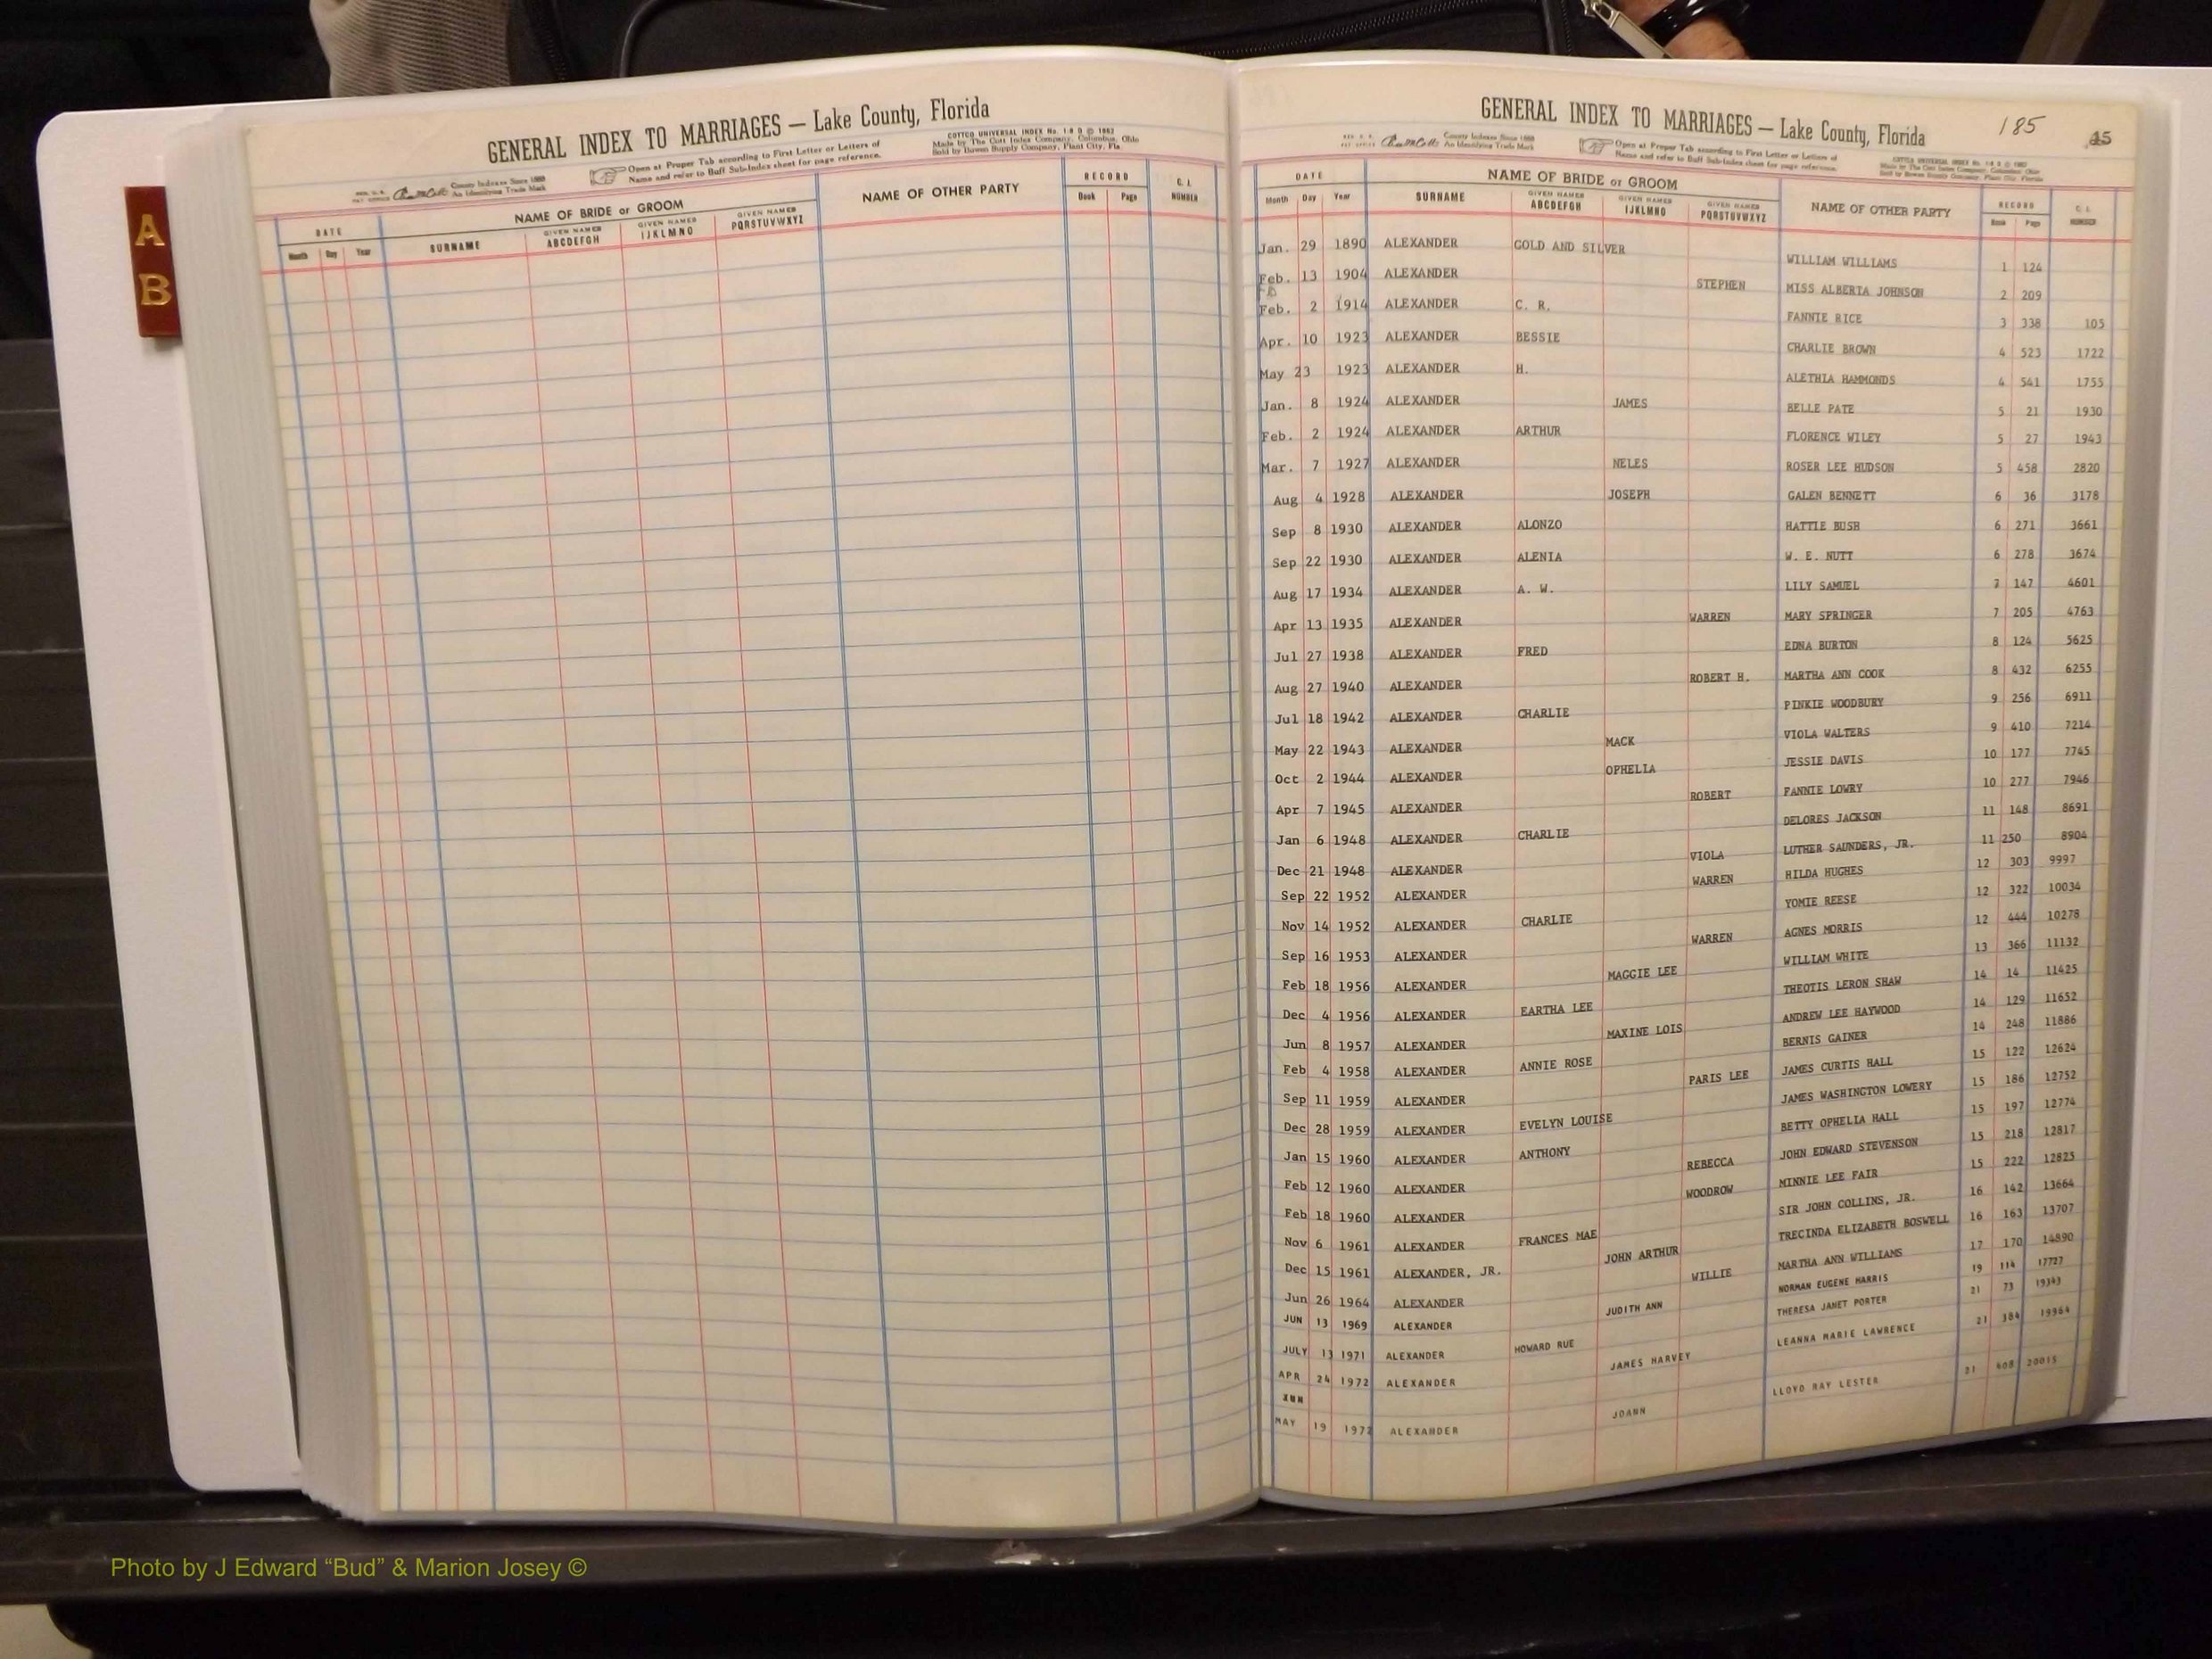 A
B
GENERAL INDEX TO MARRIAGES — Lake County, Florida
REG. U.S. PAT OFFICE County Indexes Since 1888 An Identifying Trade Mark
Open at Proper Tab according to First Letter or Letters of
Name and refer to Buff Sub-Index sheet for page reference.
COTTCO UNIVERSAL INDEX No.
Made by The Cott Index Company, Columbus, Ohio
Sold by Bowen Supply Company, Plant City, Fla.
DATE NAME OF BRIDE or GROOM NAME OF OTHER PARTY RECORD C. I. NUMBER
Month Day Year SURNAME GIVEN NAMES ABCDEFGH GIVEN NAMES IJKLMNO GIVEN NAMES PQRSTUVWXYZ Book Page
GENERAL INDEX TO MARRIAGES — Lake County, Florida 185 45
County Indexes Since 1888 An Identifying Trade Mark
Open at Proper Tab according to First Letter or Letters of
Name and refer to Buff Sub-Index sheet for page reference.
COTTCO UNIVERSAL INDEX No.
Made by The Cott Index Company, Columbus, Ohio
Sold by Bowen Supply Company, Plant City, Florida
DATE NAME OF BRIDE or GROOM NAME OF OTHER PARTY RECORD C. I. NUMBER
Month Day Year SURNAME GIVEN NAMES ABCDEFGH GIVEN NAMES IJKLMNO GIVEN NAMES PQRSTUVWXYZ Book Page
Jan. 29 1890 ALEXANDER GOLD AND SILVER WILLIAM WILLIAMS 1 124
Feb. 13 1904 ALEXANDER STEPHEN MISS ALBERTA JOHNSON 2 209
Feb. 2 1914 ALEXANDER C. R. FANNIE RICE 3 338 105
Apr. 10 1923 ALEXANDER BESSIE CHARLIE BROWN 4 523 1722
May 23 1923 ALEXANDER H. ALETHIA HAMMONDS 4 541 1755
Jan. 8 1924 ALEXANDER JAMES BELLE PATE 5 21 1930
Feb. 2 1924 ALEXANDER ARTHUR FLORENCE WILEY 5 27 1943
Mar. 7 1927 ALEXANDER NELES ROSER LEE HUDSON 5 458 2820
Aug 4 1928 ALEXANDER JOSEPH GALEN BENNETT 6 36 3178
Sep 8 1930 ALEXANDER ALONZO HATTIE BUSH 6 271 3661
Sep 22 1930 ALEXANDER ALENIA W. E. NUTT 6 278 3674
Aug 17 1934 ALEXANDER A. W. LILY SAMUEL 7 147 4601
Apr 13 1935 ALEXANDER WARREN MARY SPRINGER 7 205 4763
Jul 27 1938 ALEXANDER FRED EDNA BURTON 8 124 5625
Aug 27 1940 ALEXANDER ROBERT H. MARTHA ANN COOK 8 432 6255
Jul 18 1942 ALEXANDER CHARLIE PINKIE WOODBURY 9 256 6911
May 22 1943 ALEXANDER MACK VIOLA WALTERS 9 410 7214
Oct 2 1944 ALEXANDER OPHELIA JESSIE DAVIS 10 177 7745
Apr 7 1945 ALEXANDER ROBERT FANNIE LOWRY 10 277 7946
Jan 6 1948 ALEXANDER CHARLIE DELORES JACKSON 11 148 8691
Dec 21 1948 ALEXANDER VIOLA LUTHER SAUNDERS, JR. 11 250 8904
Sep 22 1952 ALEXANDER WARREN HILDA HUGHES 12 303 9997
Nov 14 1952 ALEXANDER CHARLIE YOMIE REESE 12 322 10034
Sep 16 1953 ALEXANDER WARREN AGNES MORRIS 12 444 10278
Feb 18 1956 ALEXANDER MAGGIE LEE WILLIAM WHITE 13 366 11132
Dec 4 1956 ALEXANDER EARTHA LEE THEOTIS LERON SHAW 14 14 11425
Jun 8 1957 ALEXANDER MAXINE LOIS ANDREW LEE HAYWOOD 14 129 11652
Feb 4 1958 ALEXANDER ANNIE ROSE BERNIS GAINER 14 248 11886
Sep 11 1959 ALEXANDER PARIS LEE JAMES CURTIS HALL 15 122 12624
Dec 28 1959 ALEXANDER EVELYN LOUISE JAMES WASHINGTON LOWERY 15 186 12752
Jan 15 1960 ALEXANDER ANTHONY BETTY OPHELIA HALL 15 197 12774
Feb 12 1960 ALEXANDER REBECCA JOHN EDWARD STEVENSON 15 218 12817
Feb 18 1960 ALEXANDER WOODROW MINNIE LEE FAIR 15 222 12825
Nov 6 1961 ALEXANDER FRANCES MAE SIR JOHN COLLINS, JR. 16 142 13664
Dec 15 1961 ALEXANDER, JR. JOHN ARTHUR TRECINDA ELIZABETH BOSWELL 16 163 13707
Jun 26 1964 ALEXANDER WILLIE MARTHA ANN WILLIAMS 17 170 14890
JUN 13 1969 ALEXANDER JUDITH ANN NORMAN EUGENE HARRIS 19 114 17727
JULY 13 1971 ALEXANDER HOWARD RUE THERESA JANET PORTER 21 73 19343
APR 24 1972 ALEXANDER JAMES HARVEY LEANNA MARIE LAWRENCE 21 384 19964
MAY 19 1972 ALEXANDER JOANN LLOYD RAY LESTER 21 408 20015
Photo by J Edward “Bud” & Marion Josey ©